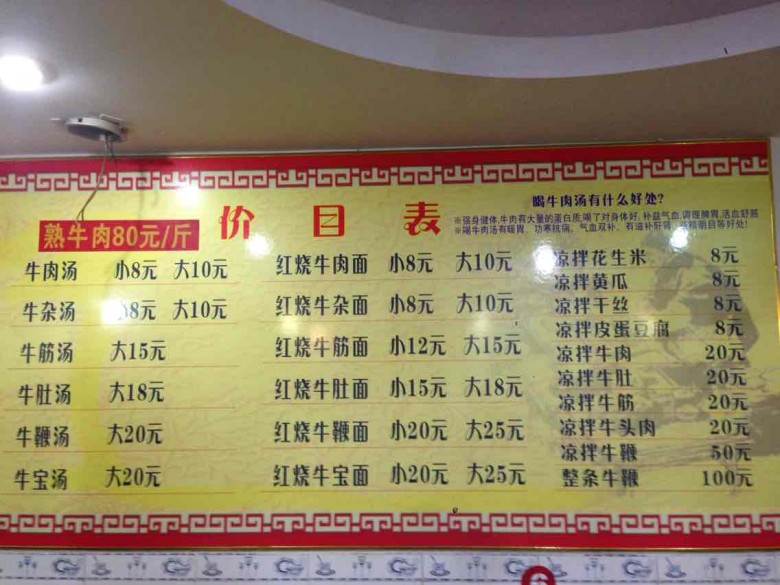 价目表
熟牛肉80元/斤
喝牛肉汤有什么好处?
※强身健体,牛肉有大量的蛋白质,喝了对身体好,补益气血,调理脾胃,活血舒筋
※喝牛肉汤有暖胃、功寒抗病、气血双补、有滋补肝肾、明目等好处!
牛肉汤 小8元 大10元
牛杂汤 小8元 大10元
牛筋汤 大15元
牛肚汤 大18元
牛鞭汤 大20元
牛宝汤 大20元
红烧牛肉面 小8元 大10元
红烧牛杂面 小8元 大10元
红烧牛筋面 小12元 大15元
红烧牛肚面 小15元 大18元
红烧牛鞭面 小20元 大25元
红烧牛宝面 小20元 大25元
凉拌花生米 8元
凉拌黄瓜 8元
凉拌干丝 8元
凉拌皮蛋豆腐 8元
凉拌牛肉 20元
凉拌牛肚 20元
凉拌牛筋 20元
凉拌牛头肉 20元
凉拌牛鞭 50元
整条牛鞭 100元
6